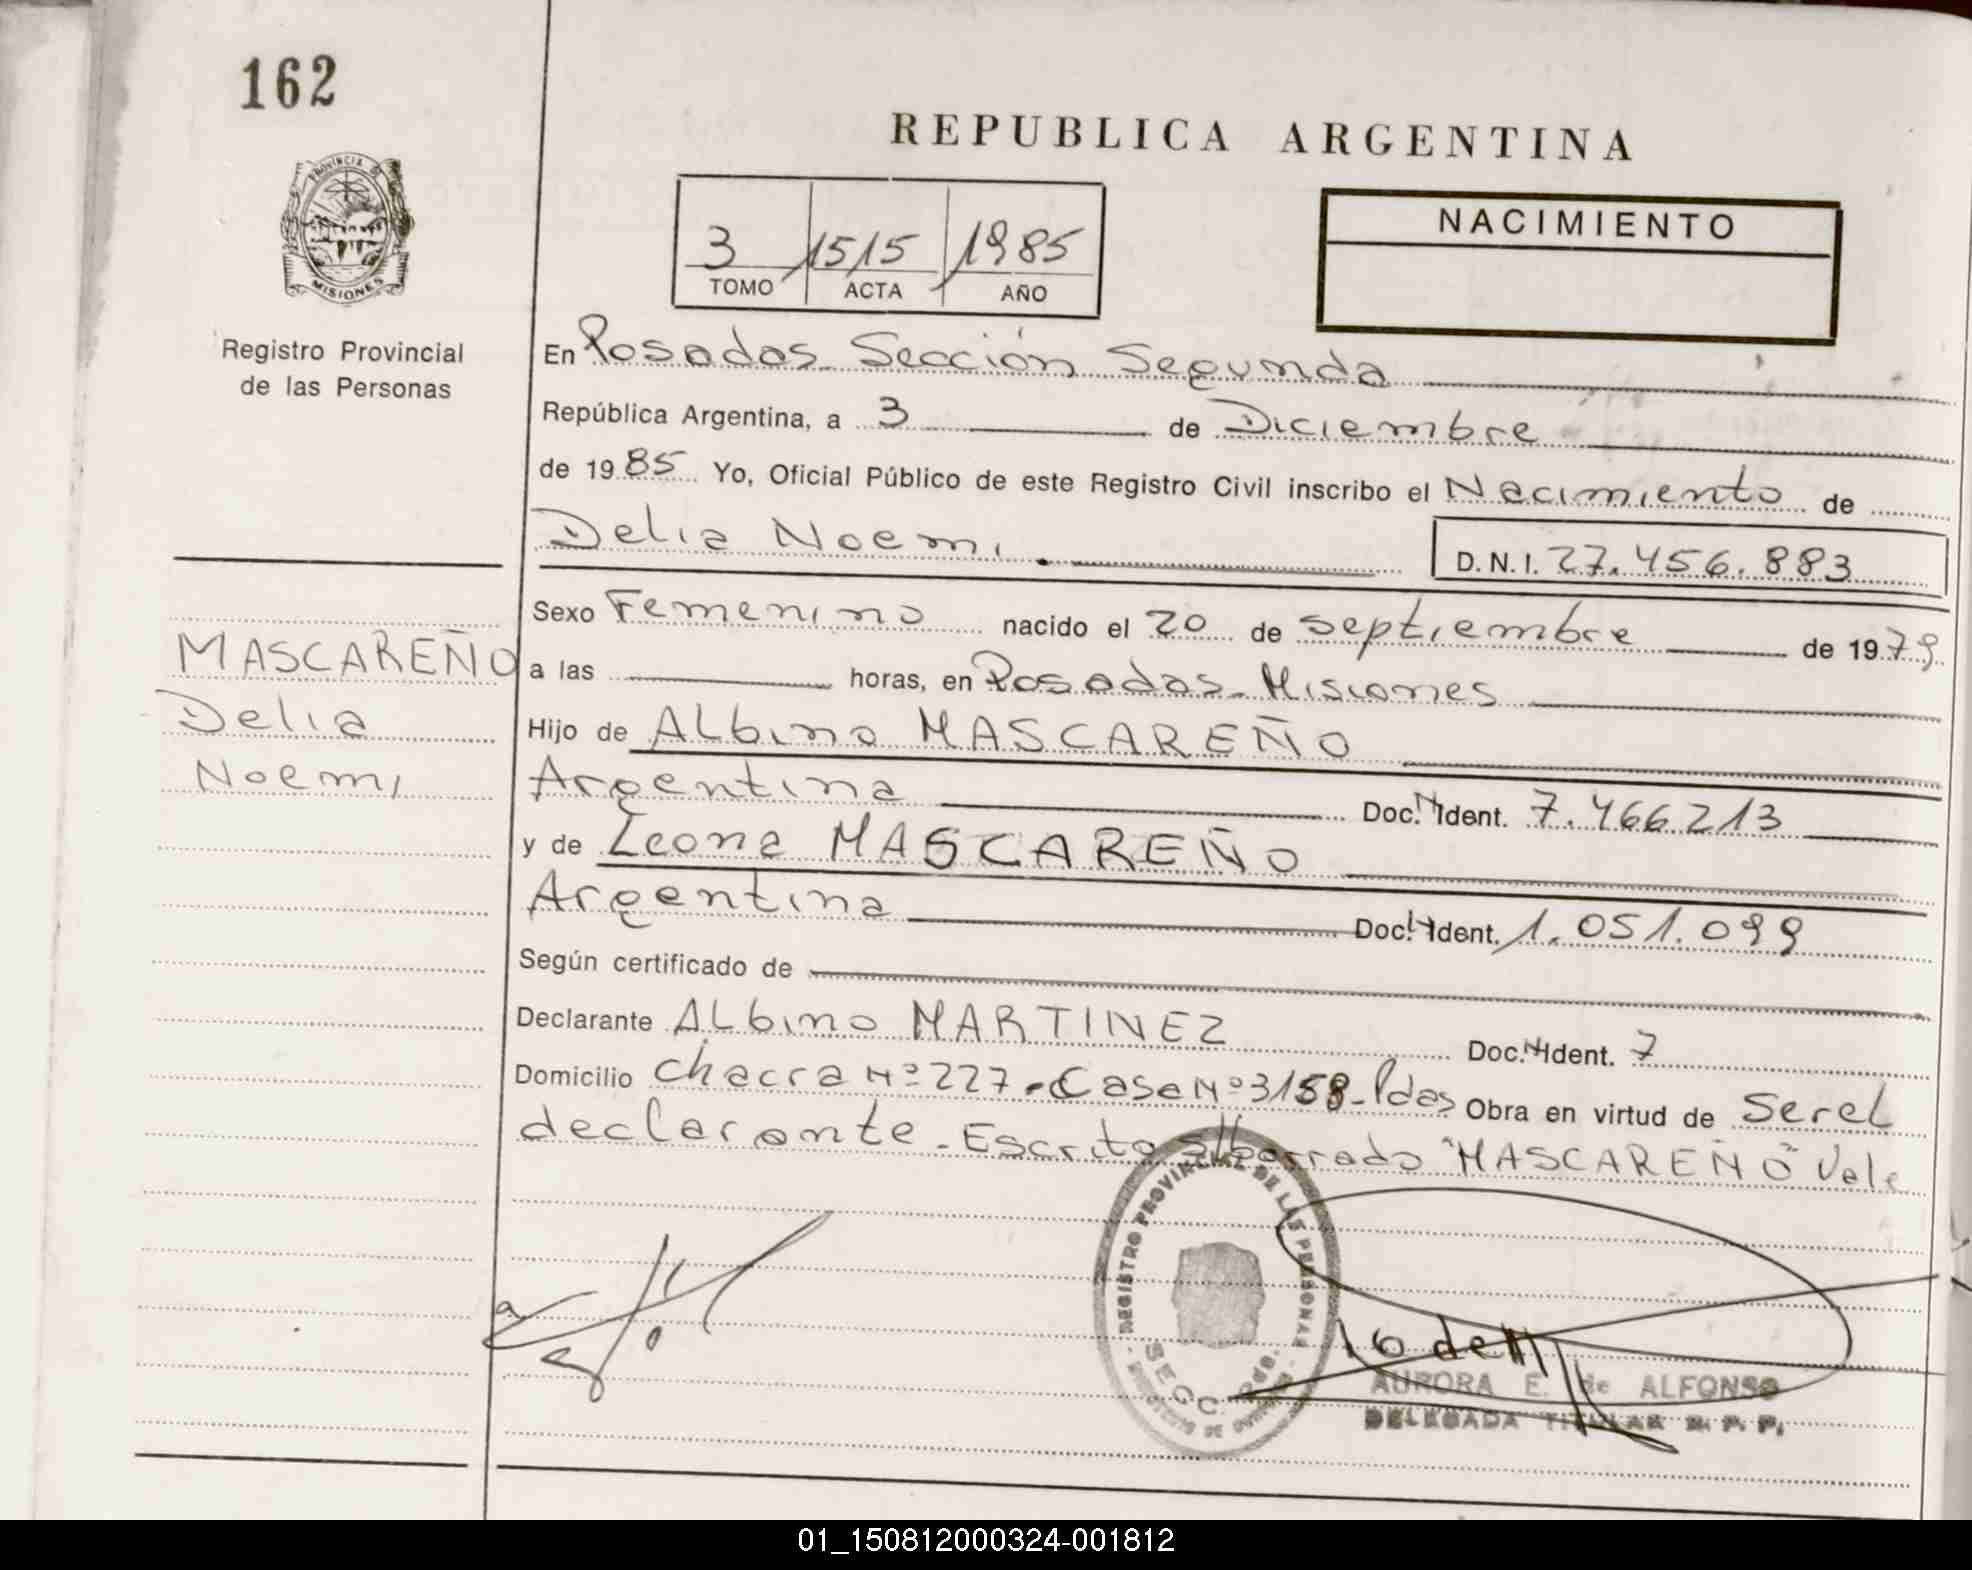 162
REPUBLICA ARGENTINA
PROVINCIA DE
MISIONES
3 1515 1985
TOMO ACTA AÑO
NACIMIENTO
Registro Provincial
de las Personas
En Posadas Sección Segunda
República Argentina, a 3 de Diciembre
de 1985 Yo, Oficial Público de este Registro Civil inscribo el Nacimiento de
Delia Noemi
D. N. I. 27.456.883
Sexo Femenino nacido el 20 de septiembre de 1979
MASCAREÑO
Delia
Noemi
a las horas, en Posadas - Misiones
Hijo de Albino MASCAREÑO
Argentina Doc. N Ident. 7.466213
y de Leona MASCAREÑO
Argentina Doc. N Ident. 1.051.099
Según certificado de
Declarante Albino MARTINEZ Doc. N Ident. 7
Domicilio Chacra Nº 227 - Casa Nº 3158 - Pdas Obra en virtud de Ser el
declarante - Escrito s/borrado "MASCAREÑO" Vale
REGISTRO PROVINCIAL DE LAS PERSONAS
SECC. 2da.
AURORA E. de ALFONSO
DELEGADA TITULAR R. P. P.
01_150812000324-001812